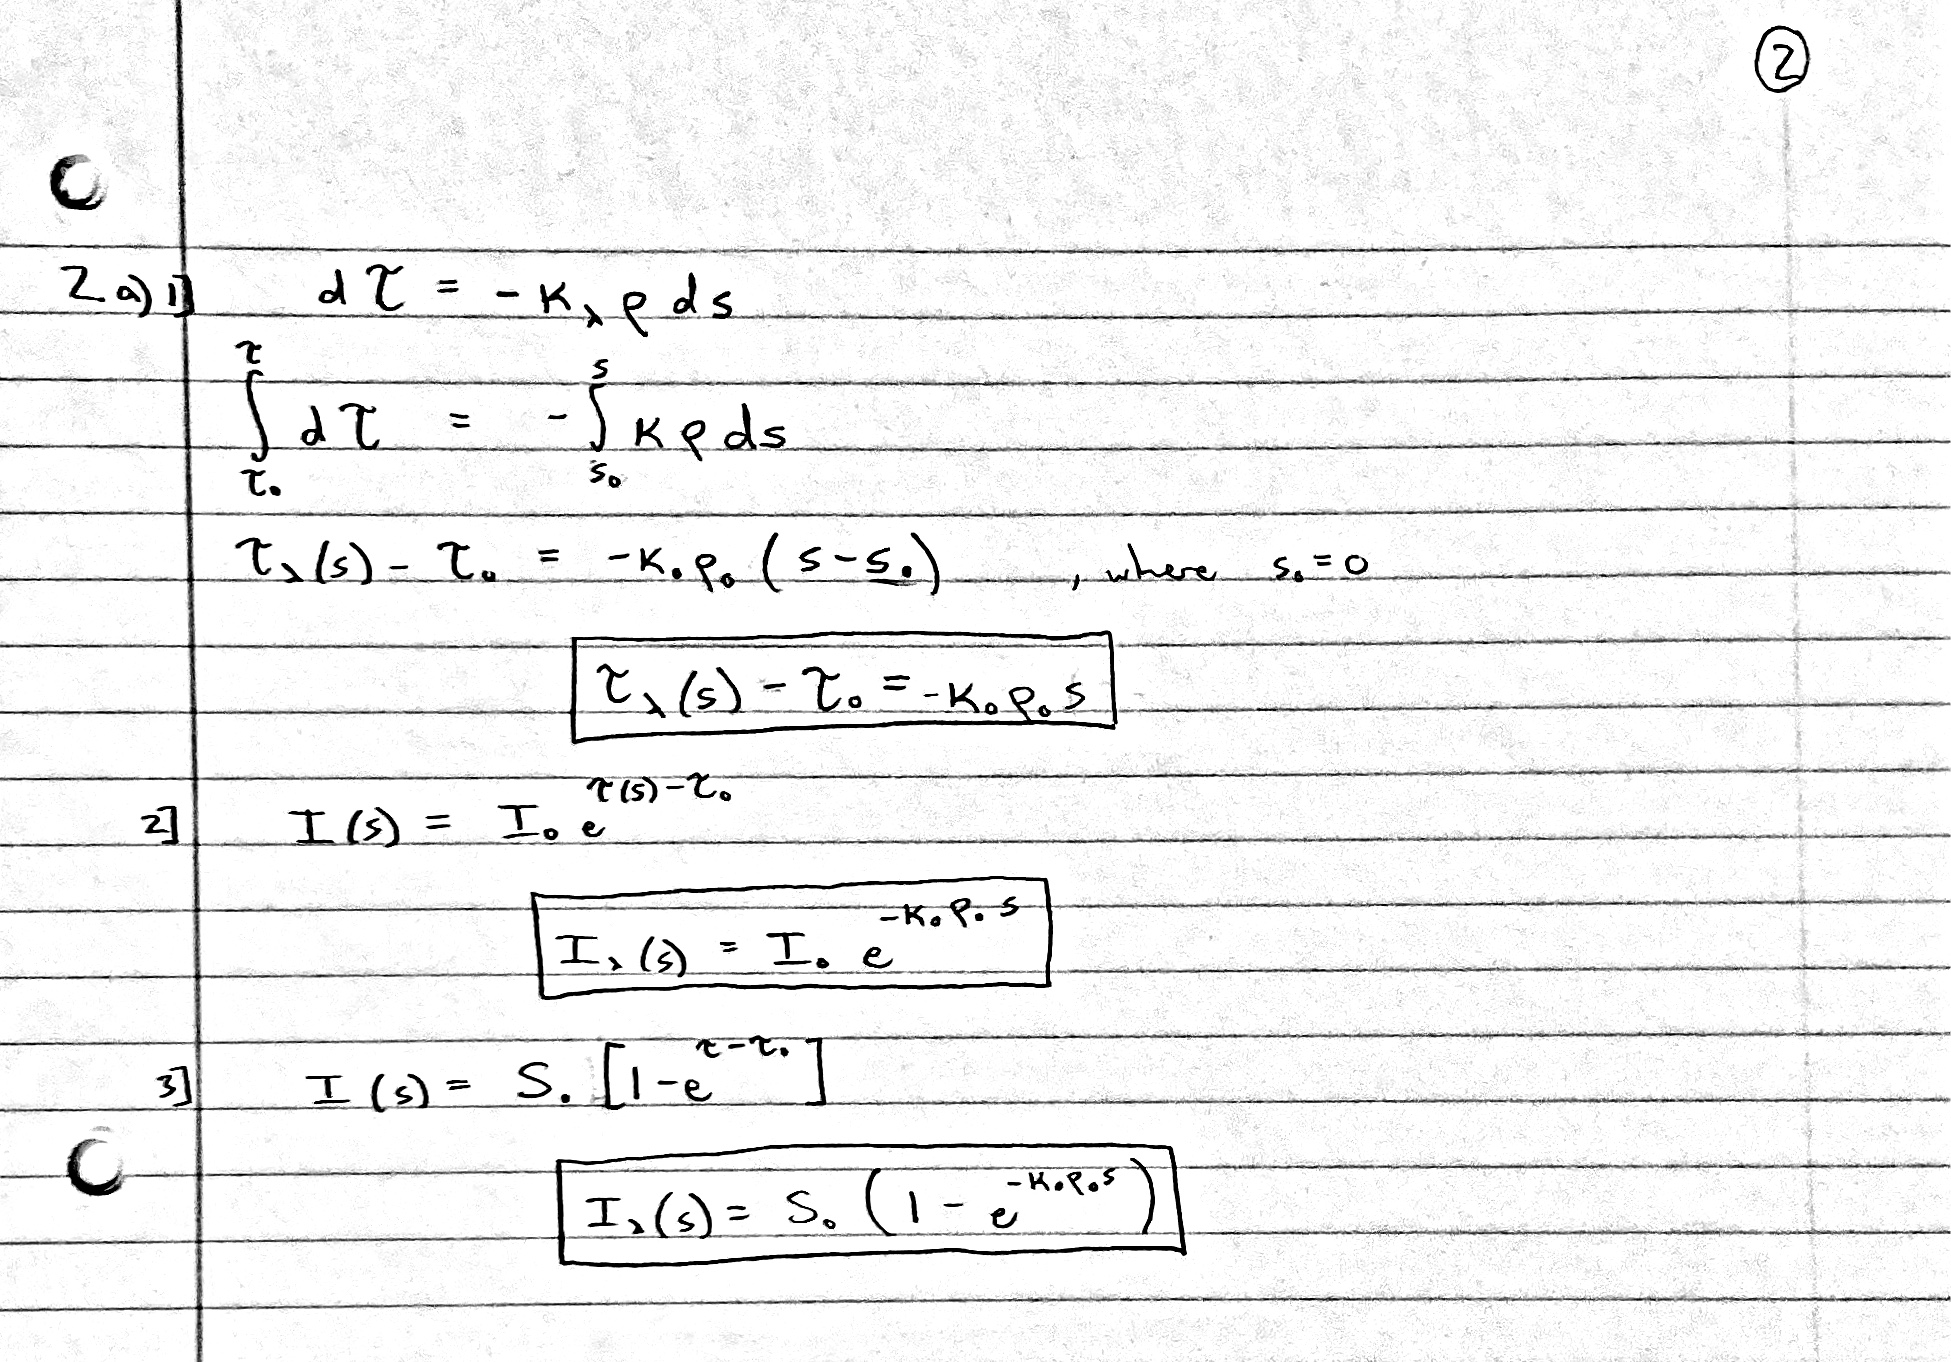 ②
2a) 1] dτ = -κ_λ ρ ds
∫_{τ₀}^{τ} dτ = -∫_{s₀}^{s} κρ ds
τ_λ(s) - τ₀ = -κ₀ρ₀ (s-s₀) , where s₀=0
τ_λ(s) - τ₀ = -κ₀ρ₀s
2] I(s) = I₀ e^{τ(s)-τ₀}
I_λ(s) = I₀ e^{-κ₀ρ₀s}
3] I(s) = S₀ [1-e^{τ-τ₀}]
I_λ(s) = S₀ (1 - e^{-κ₀ρ₀s})